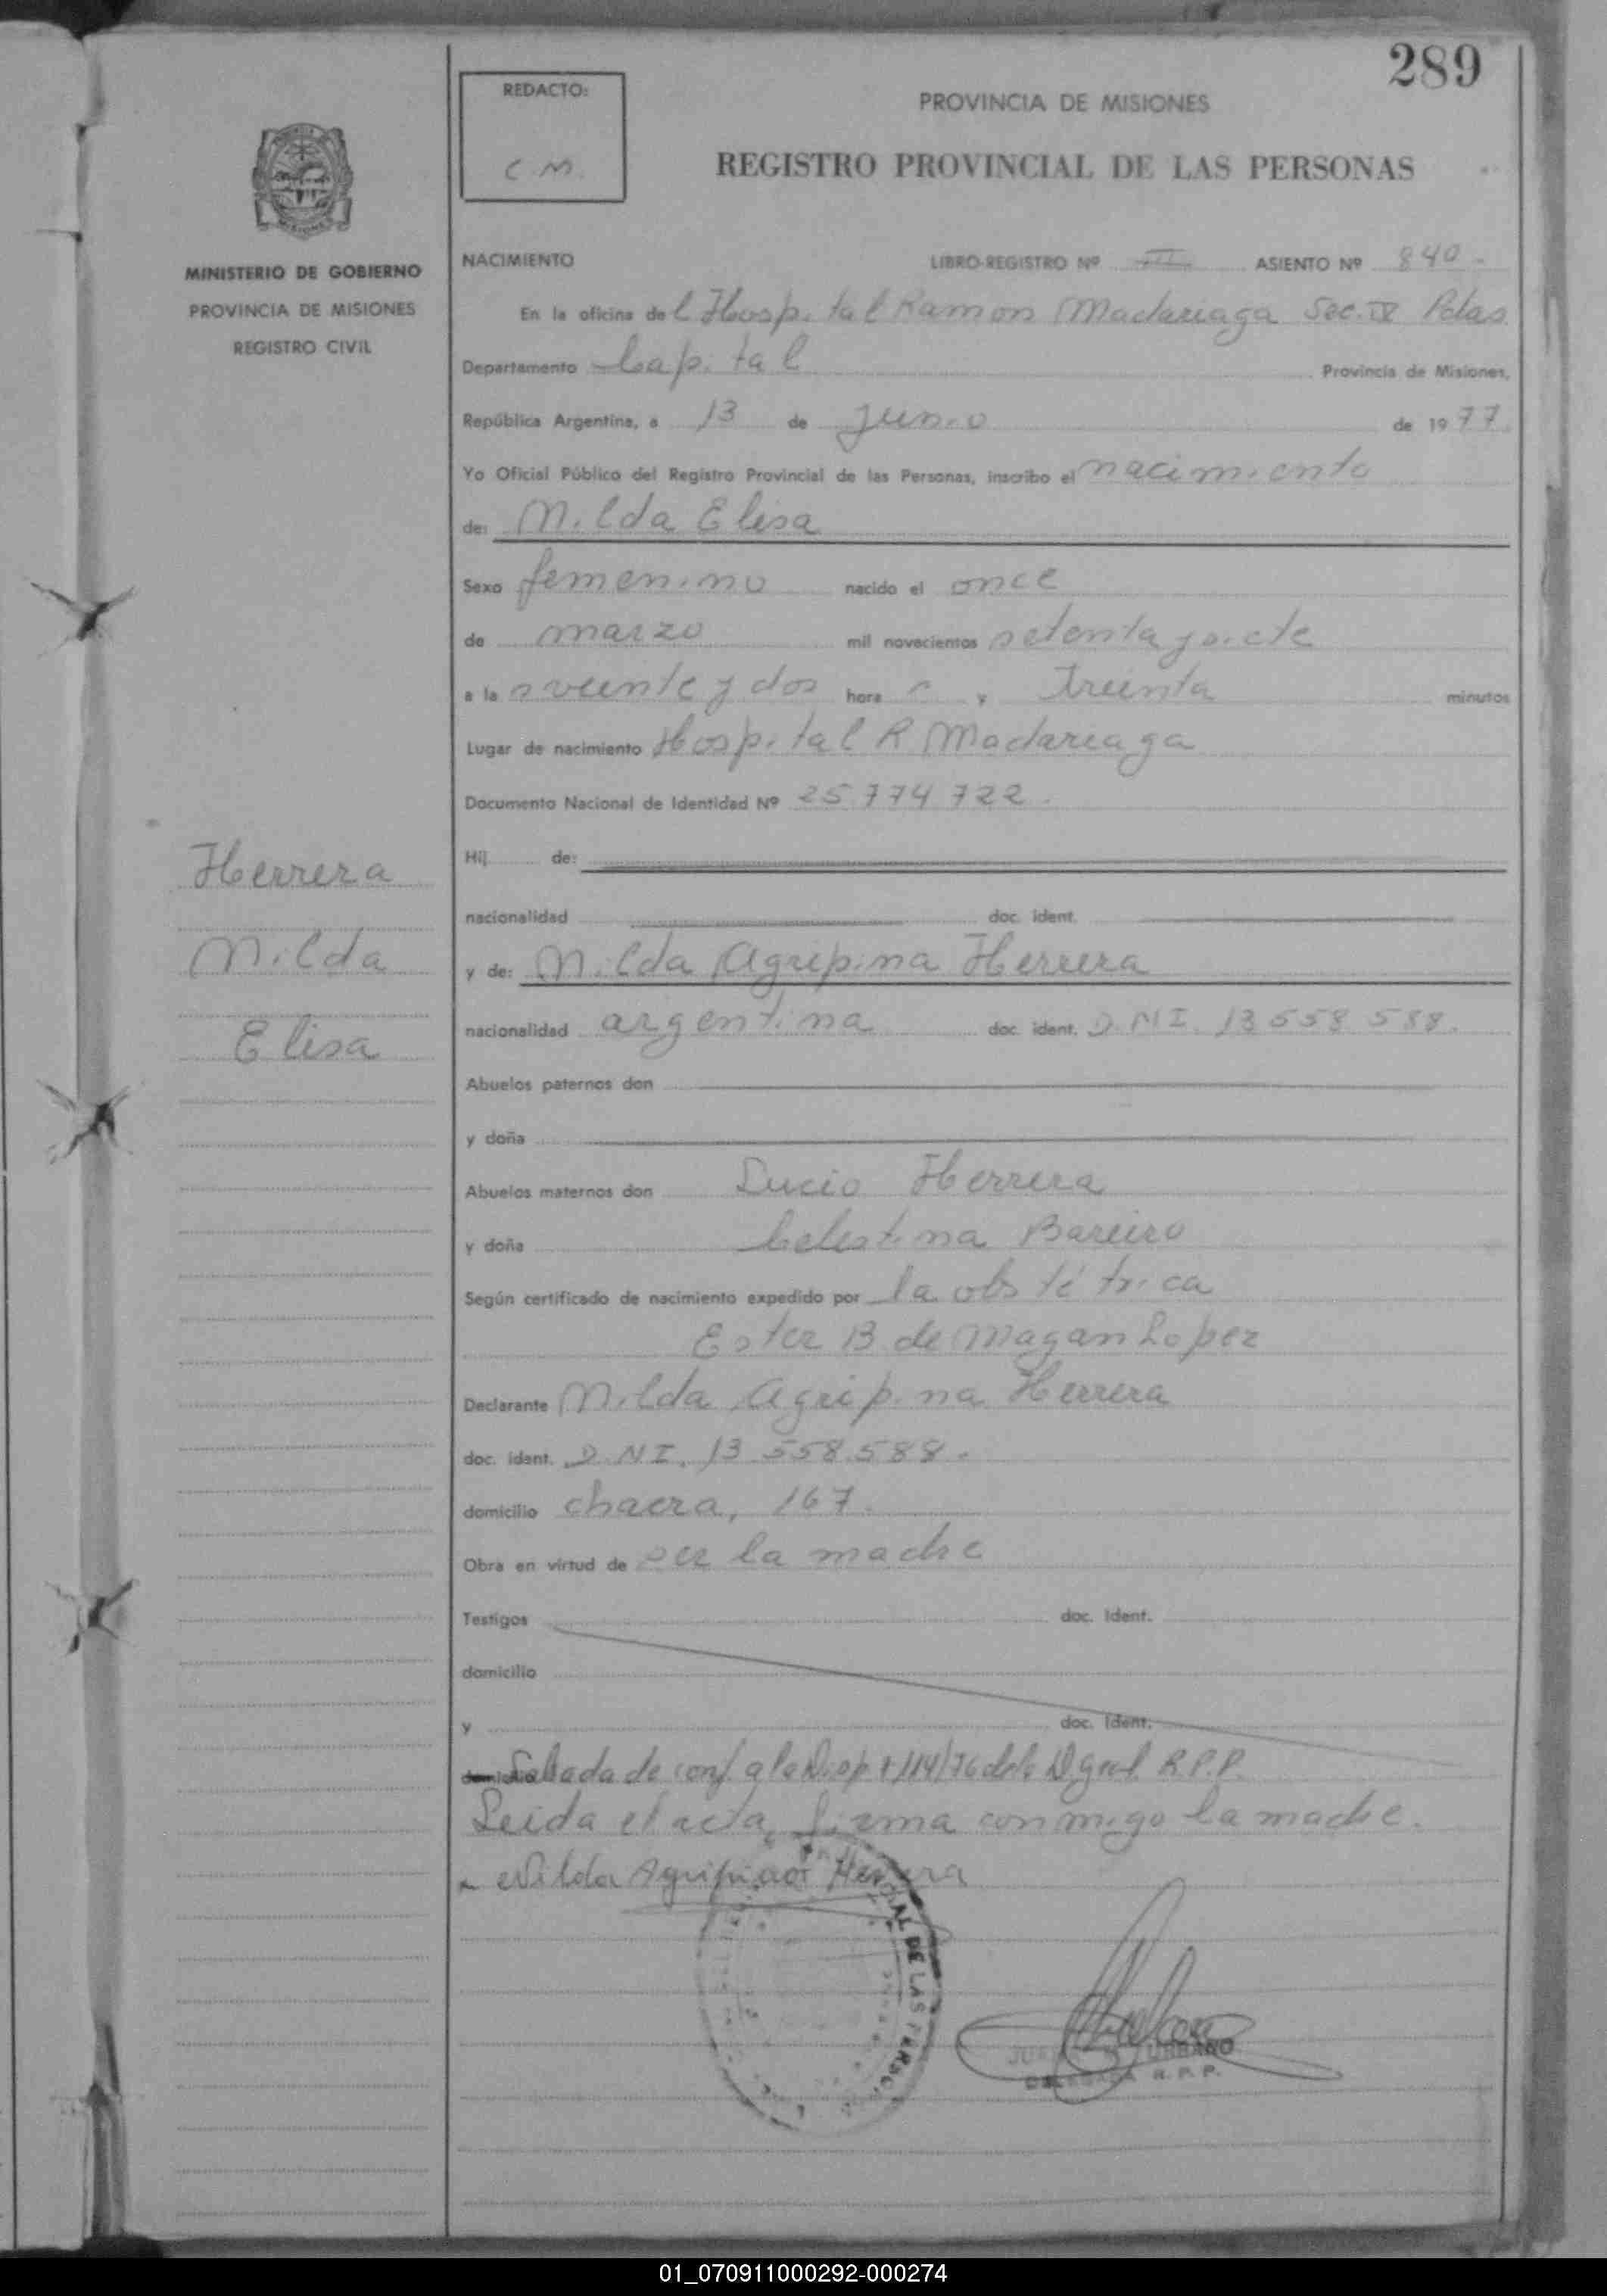 289
REDACTO:
C M.
PROVINCIA DE MISIONES
REGISTRO PROVINCIAL DE LAS PERSONAS
MISIONES
MINISTERIO DE GOBIERNO
PROVINCIA DE MISIONES
REGISTRO CIVIL
NACIMIENTO LIBRO-REGISTRO Nº III ASIENTO Nº 840.
En la oficina del Hospital Ramon Madariaga Sec. IV Pdas
Departamento Capital Provincia de Misiones,
República Argentina, a 13 de Junio de 1977.
Yo Oficial Público del Registro Provincial de las Personas, inscribo el nacimiento
de: Milda Elisa
Sexo femenino nacido el once
de marzo mil novecientos setenta y siete
a las veinte y dos hora s y Treinta minutos
Lugar de nacimiento Hospital R Madariaga
Documento Nacional de Identidad Nº 25.774 722.
Hij de:
nacionalidad doc. ident.
y de: Nilda Agripina Herrera
nacionalidad argentina doc. ident. D.N.I. 13 558 588.
Abuelos paternos don
y doña
Abuelos maternos don Lucio Herrera
y doña Celestina Bareiro
Según certificado de nacimiento expedido por la obstétrica
Ester B de Magan Lopez
Declarante Nilda Agripina Herrera
doc. ident. D.N.I. 13.558.588.
domicilio chacra, 167.
Obra en virtud de ser la madre
Testigos doc. ident.
domicilio
y doc. ident.
de conf. a la Disp. 114/76 de la D. gral. R.P.P.
Leida el acta, firma conmigo la madre.
Nilda Agripina Herrera
Herrera
Milda
Elisa
DE LAS PERSO
URBANO
DELEGADA R.P.P.
01_070911000292-000274